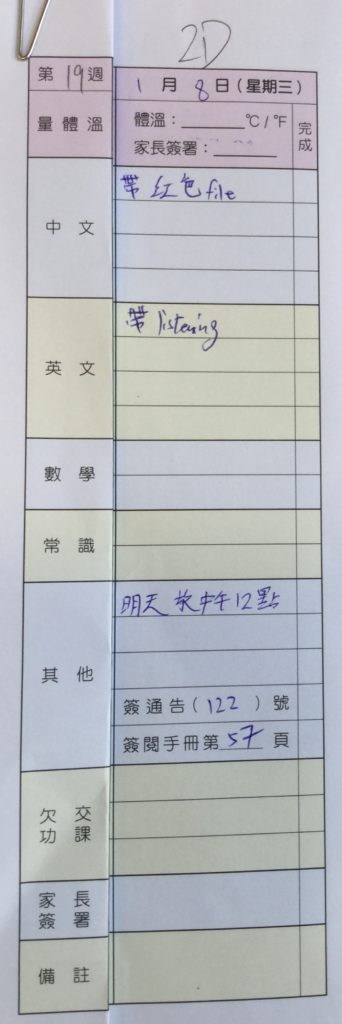 2D
第19週
1月8日(星期三)
量體溫
體溫:______℃/℉
家長簽署:______
完成
中文
帶紅色file
英文
帶listening
數學
常識
其他
明天放中午12點
簽通告(122)號
簽閱手冊第57頁
欠交
功課
家長
簽署
備註